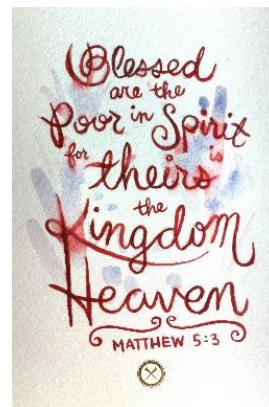 Blessed
are the
Poor in Spirit
for theirs is
the
Kingdom
Heaven
MATTHEW 5:3